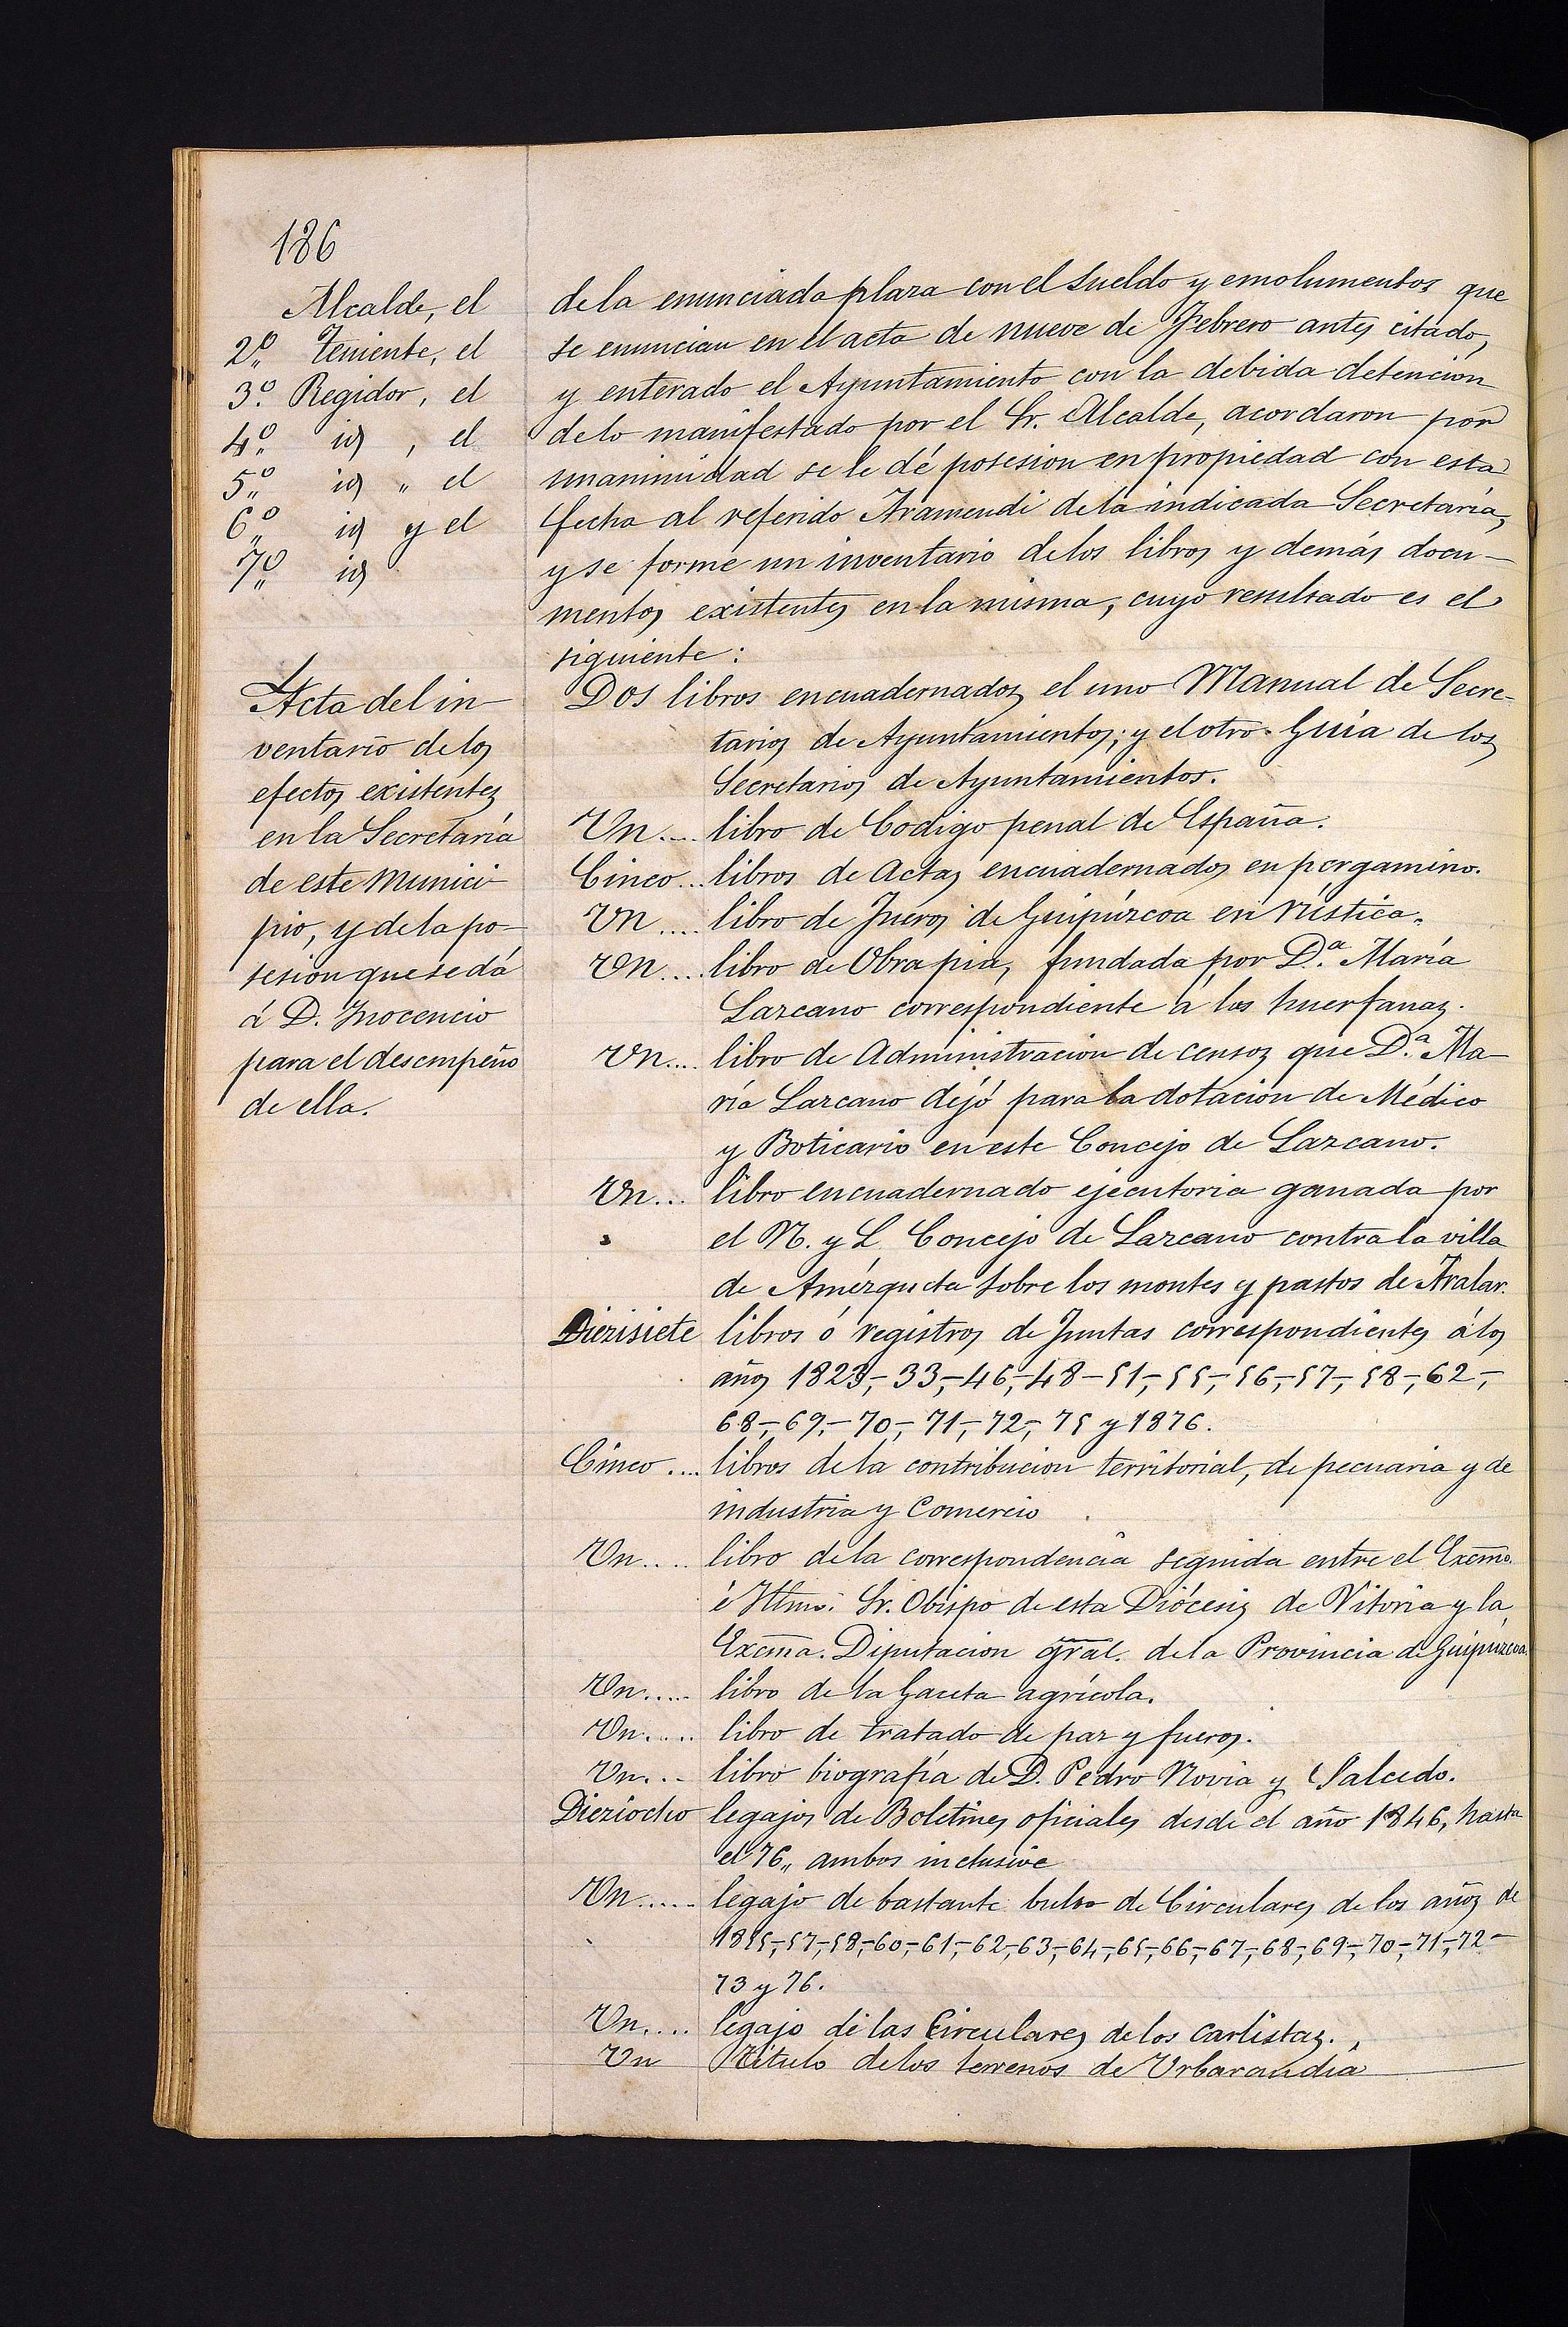 186
Alcalde, el
2º Teniente, el
3º Regidor, el
4º id , el
5º id " el
6º id y el
7º id
Acta del in-
ventario de los
efectos existentes
en la Secretaría
de este Munici-
pio, y de la po-
sesion que se dá
á D. Inocencio
para el desempeño
de ella.
de la enunciada plaza con el sueldo y emolumentos que
se enuncian en el acta de nueve de Febrero antes citado,
y enterado el Ayuntamiento con la debida detencion
de lo manifestado por el Sr. Alcalde, acordaron por
unanimidad se le dé posesion en propiedad con esta
fecha al referido Aramendi de la indicada Secretaría,
y se forme un inventario de los libros y demás docu-
mentos existentes en la misma, cuyo resultado es el
siguiente:
Dos libros encuadernados, el uno Manual de Secre-
tarios de Ayuntamientos; y el otro Guía de los
Secretarios de Ayuntamientos.
Un.... libro de Codigo penal de España.
Cinco... libros de Actas encuadernados en pergamino.
Un.... libro de Fueros de Guipúzcoa en rústica.
Un.... libro de Obra pia, fundada por D.ª María
Lazcano correspondiente á las huerfanas.
Un.... libro de Administracion de censos que D.ª Ma-
ría Lazcano dejó para la dotacion de Médico
y Boticario en este Concejo de Lazcano.
Un... libro encuadernado ejecutoria ganada por
el N. y L. Concejo de Lazcano contra la villa
de Amézqueta sobre los montes y pastos de Aralar.
Diezisiete libros ó registros de Juntas correspondientes á los
años 1823,-33,-46,-48-51,-55,-56,-57,-58-,62,-
68-,69,-70,-71,-72,-75 y 1876.
Cinco.... libros de la contribucion territorial, de pecuaria y de
industria y Comercio
Un.... libro de la correspondencia seguida entre el Excmo.
é Iltmo. Sr. Obispo de esta Diócesis de Vitoria y la
Excma. Diputacion gral. de la Provincia de Guipúzcoa
Un..... libro de la Gaceta agrícola.
Un..... libro de tratado de paz y fueros.
Un... libro biografía de D. Pedro Novia y Salcedo.
Dieziocho legajos de Boletines oficiales desde el año 1846, hasta
el 76,, ambos inclusive
Un..... legajo de bastante bulto de Circulares de los años de
1855,-57,-58,-60,-61,-62,-63,-64,-65,-66,-67,-68,-69,-70,-71,-72-
73 y 76.
Un.... legajo de las Circulares de los Carlistas.
Un Título de los terrenos de Urbarandia